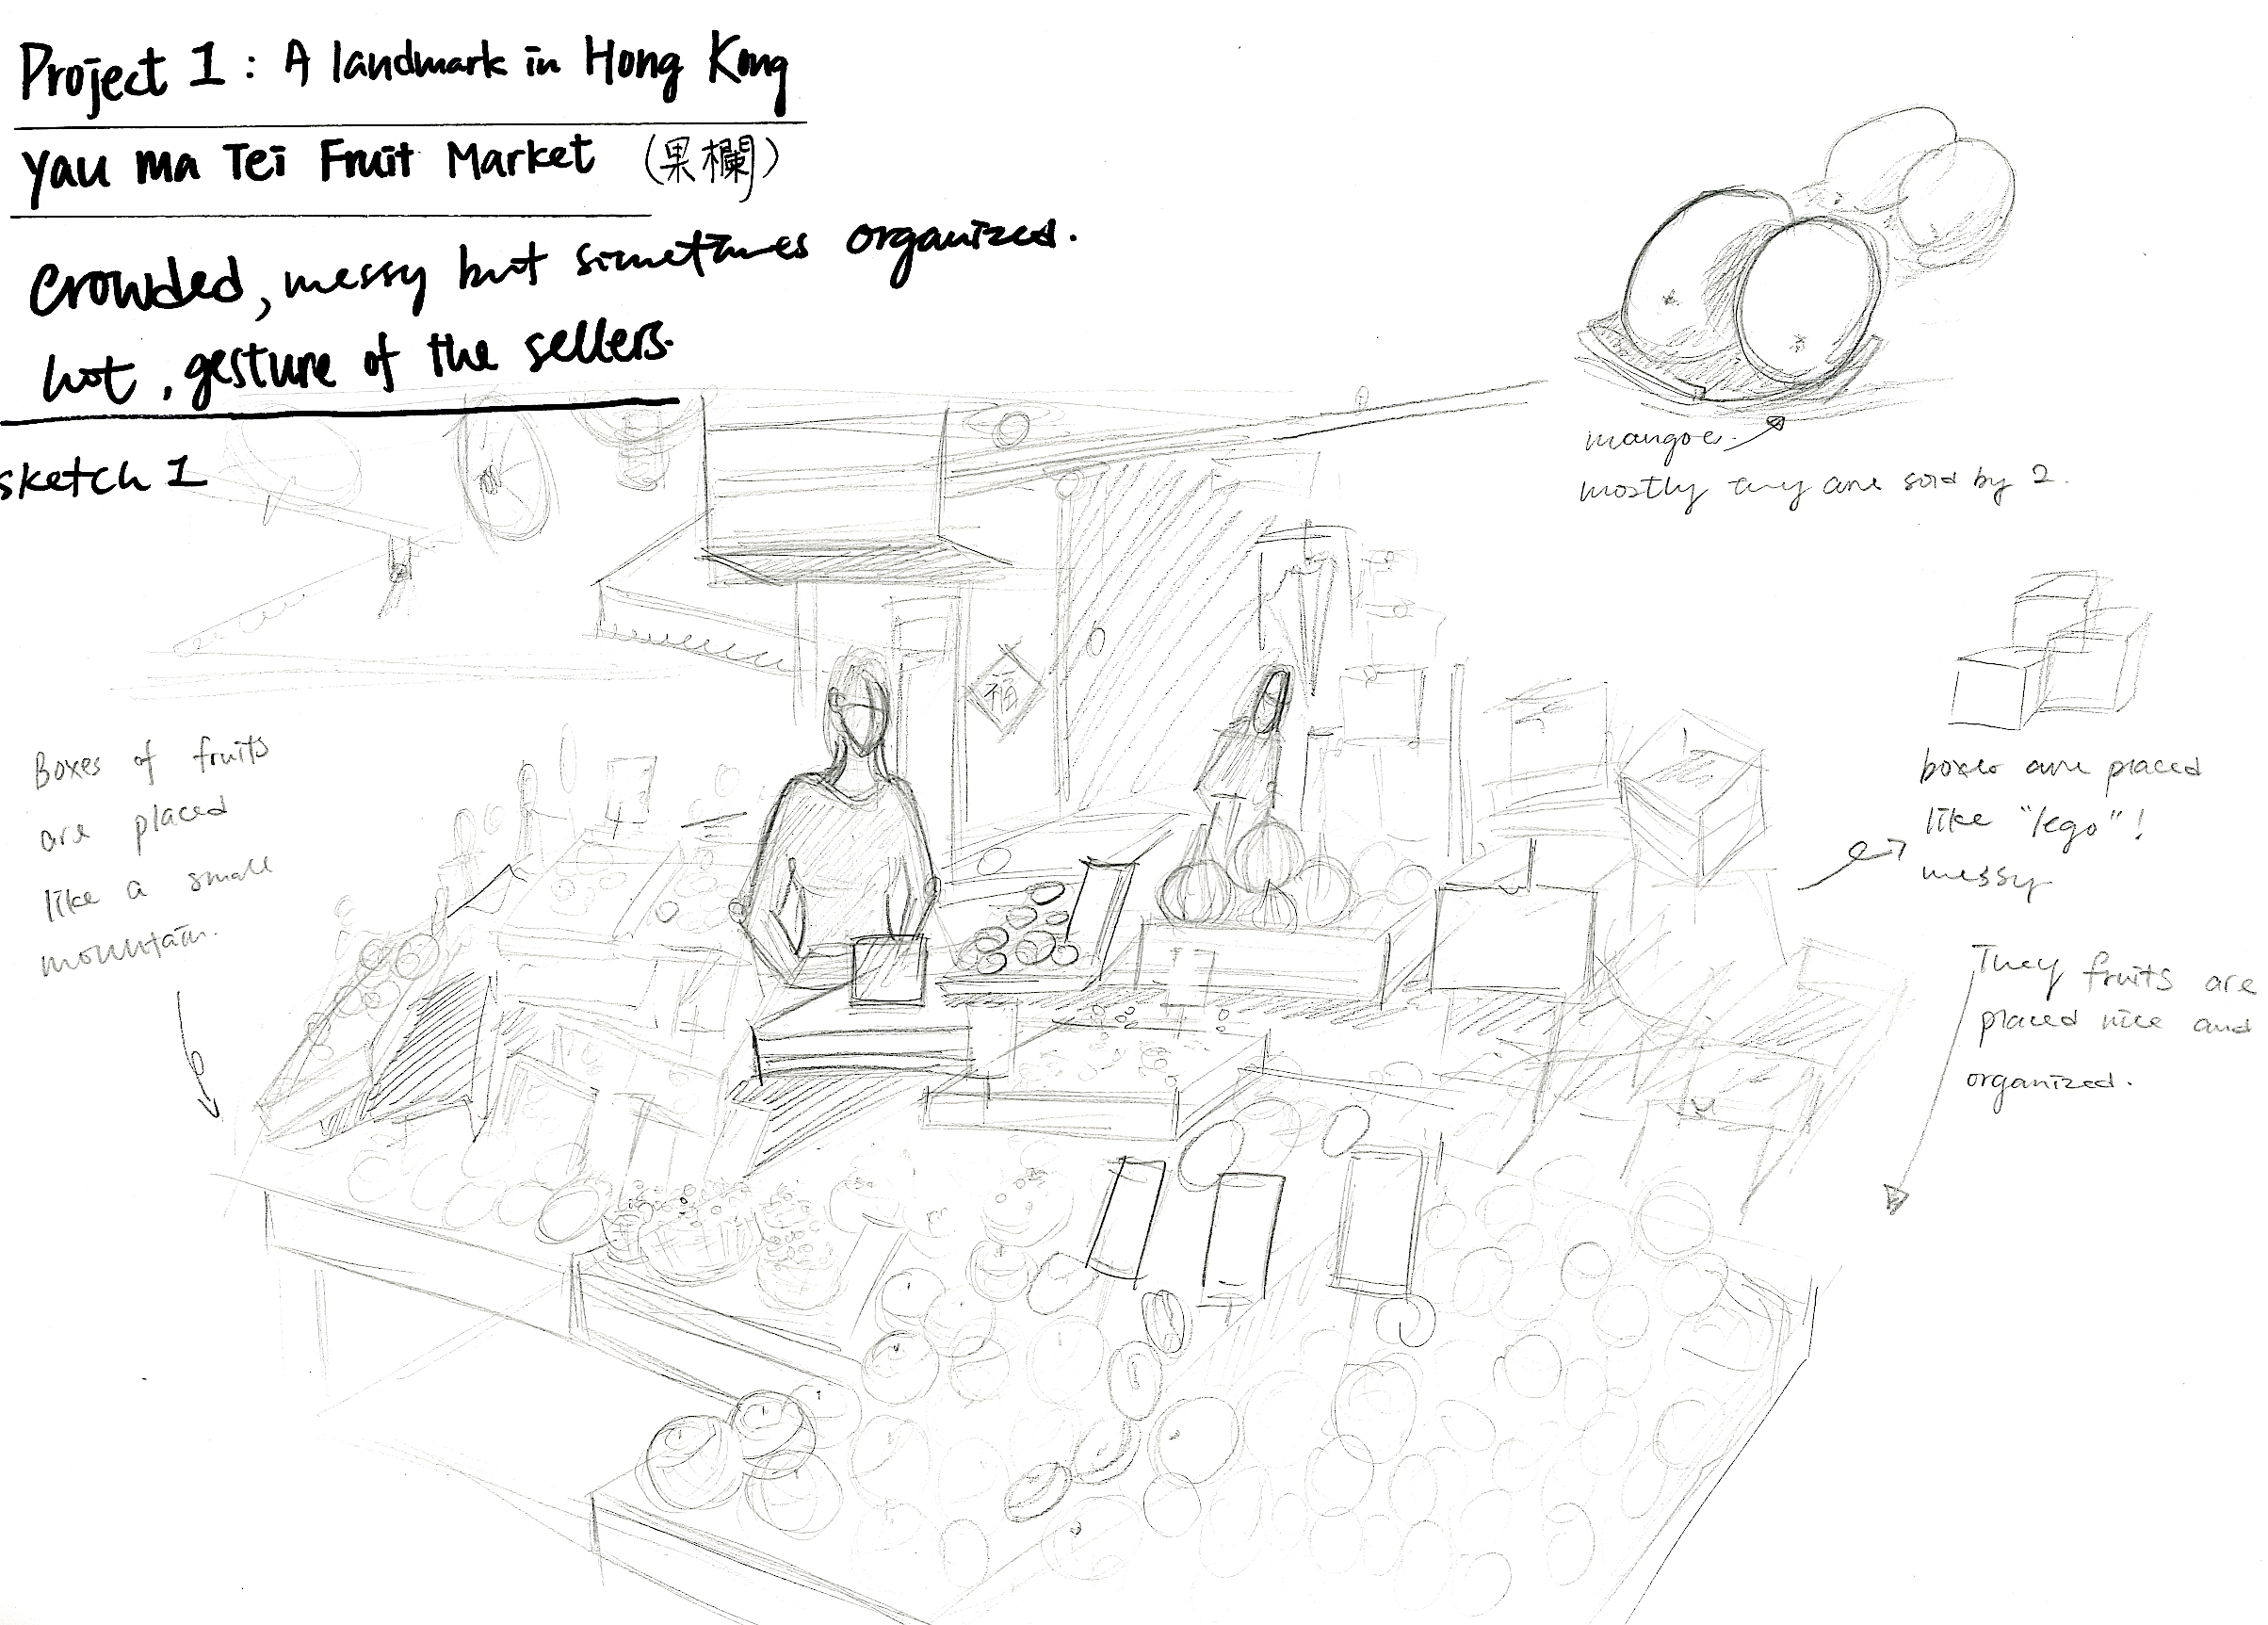 Project 1 : A landmark in Hong Kong
Yau Ma Tei Fruit Market (果欄)
crowded, messy but simetimes organized.
hot, gesture of the sellers.
sketch 1
mangoe.
mostly they are sold by 2.
福
Boxes of fruits
are placed
like a small
mountain.
boxes are placed
like "lego" !
messy
They fruits are
placed nice and
organized.